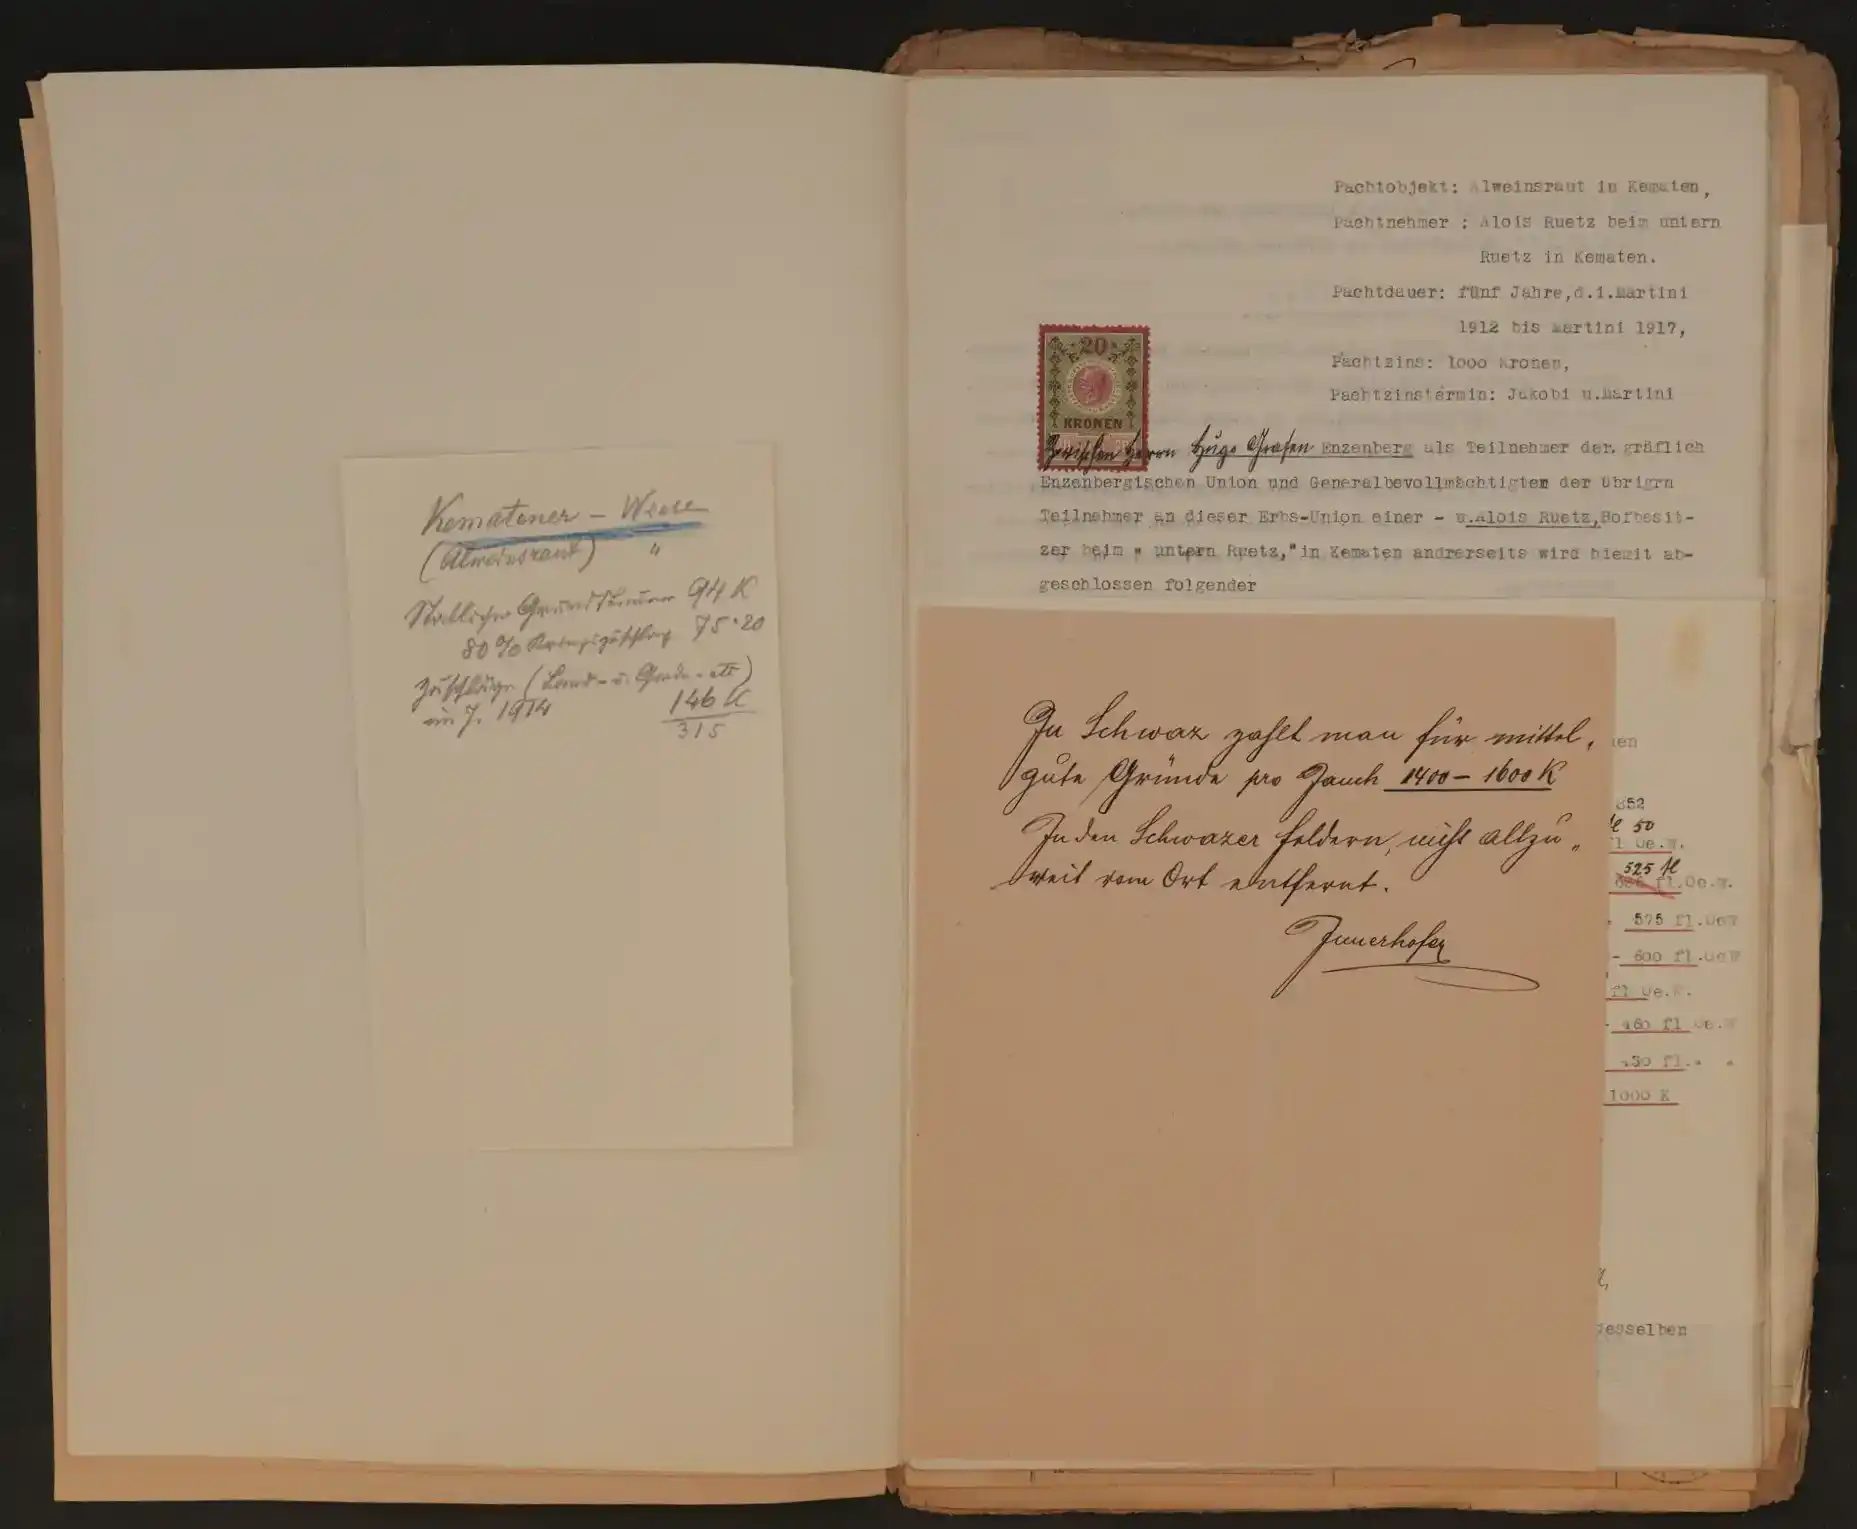 Kematener - Wiese
(Alweinsraut) "
Grundsteuer 94 K
80 % Kriegszuschlag 75·20
Zuschläge (Land- u. Gmde - etc)
im J. 1914 146 K
315
Pachtobjekt: Alweinsraut in Kematen,
Pachtnehmer : Alois Ruetz beim untern
Ruetz in Kematen.
Pachtdauer: fünf Jahre,d.i.Martini
1912 bis Martini 1917,
Pachtzins: 1000 Kronen,
Pachtzinstermin: Jakobi u.Martini
20
KRONEN
Zwischen Herrn Hugo Grafen Enzenberg als Teilnehmer der gräflich
Enzenbergischen Union und Generalbevollmächtigten der übrigrn
Teilnehmer an dieser Erbs-Union einer - u.Alois Ruetz,Hofbesit-
zer beim " untern Ruetz,"in Kematen andrerseits wird hiemit ab-
geschlossen folgender
In Schwaz zahlt man für mittel„
gute Gründe pro Jauch 1400 - 1600 K
In den Schwazer Feldern, nicht allzu„
weit vom Ort entfernt.
Innerhofer
nen
852
50
fl Oe.W.
525 fl
fl.Oe.W.
575 fl.OeW
- 600 fl.OeW
fl Oe.W.
- 460 fl Oe.W
450 fl. " "
1000 K
desselben